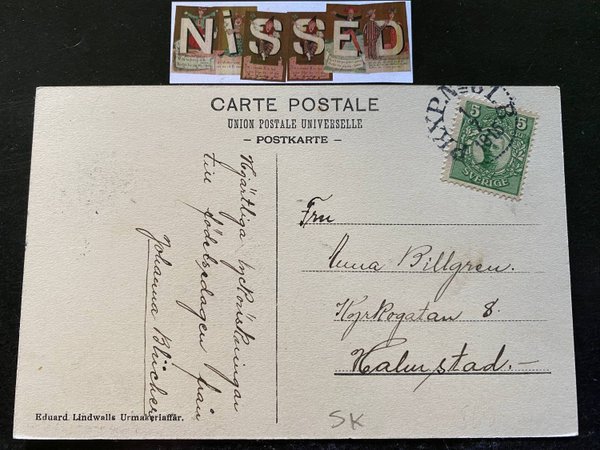 NISSED
CARTE POSTALE
UNION POSTALE UNIVERSELLE
– POSTKARTE –
PKXP. No 61. B
5 5
SVERIGE
Hjärtliga lyckönskningar
till födelsedagen från
Johanna Blücher
Fru
Anna Billgren.
Kyrkogatan 8.
Halmstad. –
Eduard Lindwalls Urmakeriaffär.
SK